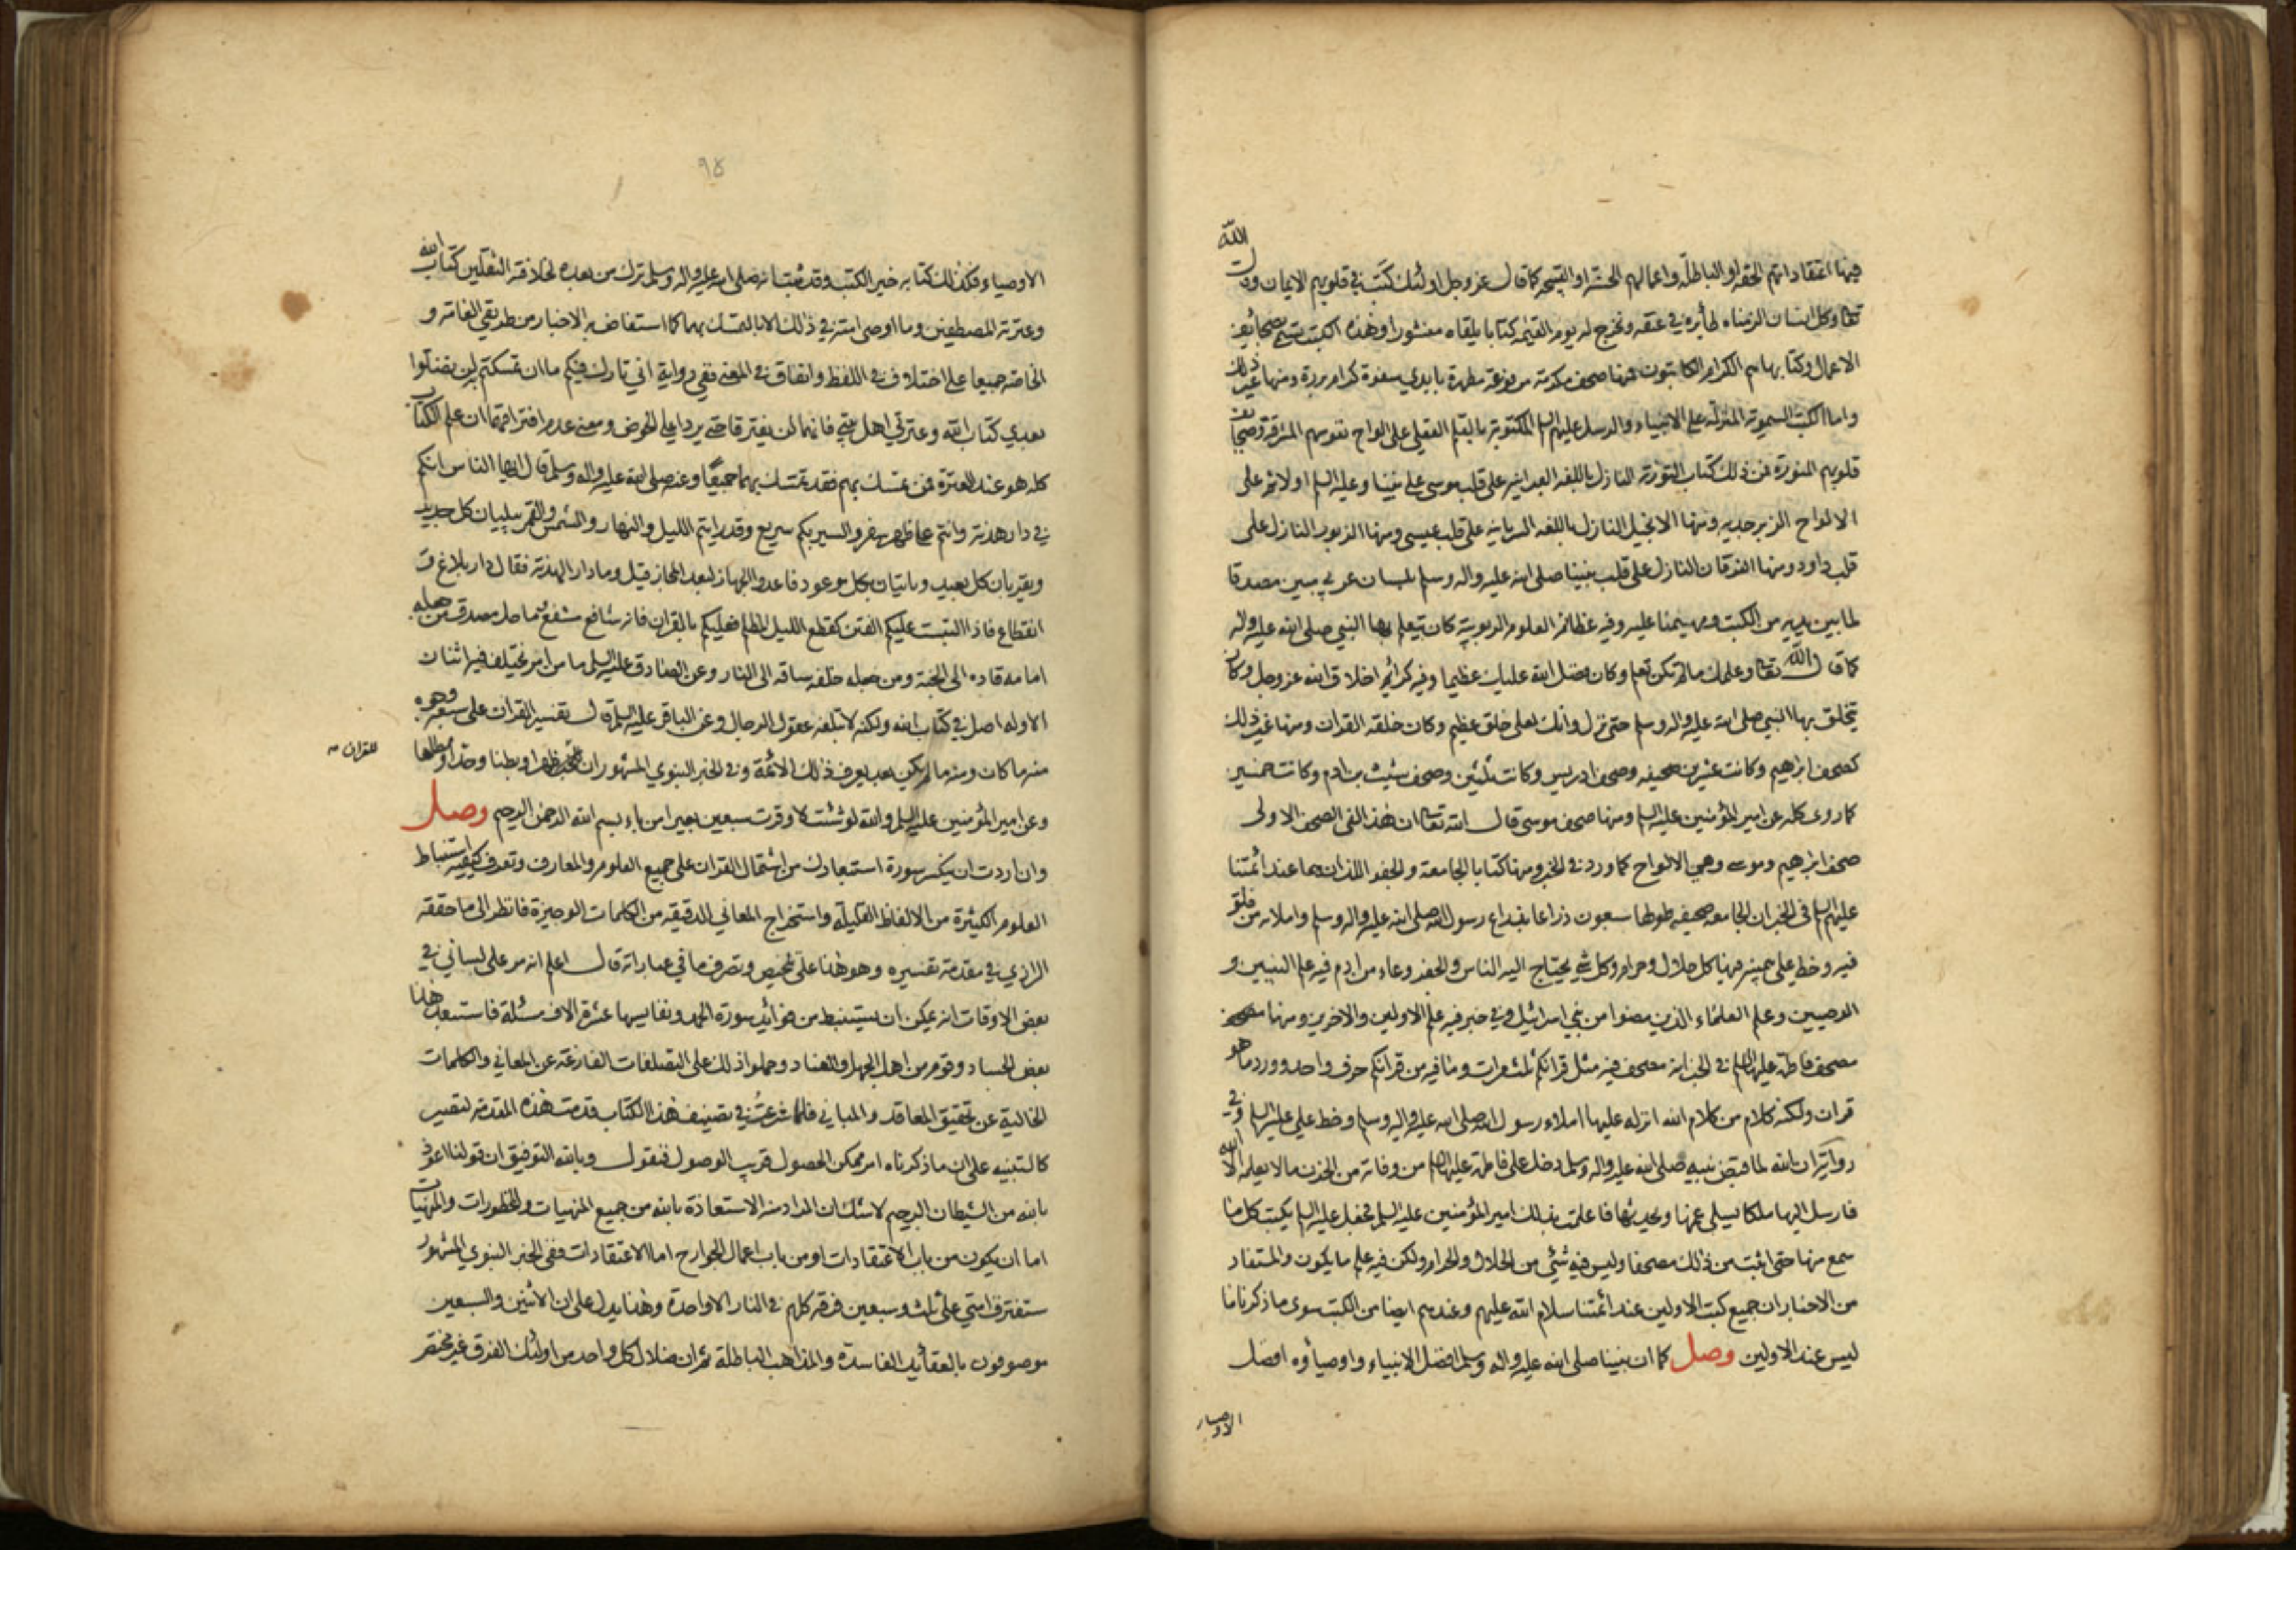 فيها اعتقاداتهم الحقة او الباطلة واعمالهم الحسنة او القبيحة كما قال عز وجل اولئك كتب في قلوبهم الايمان وقال الله
تعالى وكل انسان الزمناه طائره في عنقه ونخرج له يوم القيمه كتابا يلقاه منشورا وهذه الكتب تسمى بصحايف
الاعمال وكتابها هم الكرام الكاتبون فمنها صحف مكرمة مرفوعة مطهرة بايدي سفرة كرام بررة ومنها غير ذلك
واما الكتب السموية المنزلة على الانبياء والرسل عليهم السلم المكتوبة بالقلم العقلي على الواح نفوسهم المشرقة وصحايف
قلوبهم المنورة فمن ذلك كتاب التورية النازل باللغة العبرانيه على قلب موسى على نبينا وعليه السلم اولا ثم على
الالواح الزبرجدية ومنها الانجيل النازل باللغة السريانيه على قلب عيسى ومنها الزبور النازل على
قلب داود ومنها الفرقان النازل على قلب نبينا صلى الله عليه واله وسلم بلسان عربي مبين مصدقا
لما بين يديه من الكتب ومهيمنا عليه وفيه عظائم العلوم الربوبية كان يتعلم بها النبي صلى الله عليه واله
كما قال الله تعالى وعلمك ما لم تكن تعلم وكان فضل الله عليك عظيما وفيه كرائم اخلاق الله عز وجل وكان
يتخلق بها النبي صلى الله عليه واله وسلم حتى نزل وانك لعلى خلق عظيم وكان خلقه القران ومنها غير ذلك
كصحف ابرهيم وكانت عشرين صحيفه وصحف ادريس وكانت ثلثين وصحف شيث بن ادم وكانت خمسين
كما روى كله عن امير المؤمنين عليه السلم ومنها صحف موسى قال الله تعالى ان هذا لفي الصحف الاولى
صحف ابرهيم وموسى وهي الالواح كما ورد في الخبر ومنها كتابا الجامعة والجفر اللذان هما عند ائمتنا
عليهم السلم ففي الخبر ان الجامعه صحيفه طولها سبعون ذراعا بذراع رسول الله صلى الله عليه واله وسلم واملائه من فلق
فيه وخط علي بيمينه فيها كل حلال وحرام وكل شئ يحتاج اليه الناس والجفر وعاء من ادم فيه علم النبيين و
الوصيين وعلم العلماء الذين مضوا من بني اسرائيل وفي خبر فيه علم الاولين والاخرين ومنها
مصحف فاطمة عليها السلم في الخبر انه مصحف فيه مثل قرانكم ثلث مرات وما فيه من قرانكم حرف واحد وورد ما هو
قران ولكنه كلام من كلام الله انزله عليها املاء رسول الله صلى الله عليه واله وسلم وخط علي عليه السلم وفي
رواية ان الله لما قبض نبيه صلى الله عليه واله وسلم دخل على فاطمة عليها السلم من وفاته من الحزن ما لا يعلمه الا الله
فارسل اليها ملكا يسلي عنها ويحدثها فاعلمت بذلك امير المؤمنين عليه السلم فجعل عليه السلم يكتب كل ما
سمع منها حتى اثبت من ذلك مصحفا وليس فيه شئ من الحلال والحرام ولكن فيه علم ما يكون والمستفاد
من الاخبار ان جميع كتب الاولين عند ائمتنا سلام الله عليهم وعندهم ايضا من الكتب سوى ما ذكرنا ما
ليس عند الاولين وصل كما ان نبينا صلى الله عليه واله وسلم افضل الانبياء واوصياؤه افضل
الاوصياء
٩٥
الاوصياء فكذلك كتابه خير الكتب وقد ثبت انه صلى الله عليه واله وسلم ترك من بعده لخلافته الثقلين كتاب الله
وعترته المصطفين وما اوصى امته في ذلك الا بالتمسك بهما كما استفاض به الاخبار من طريقي العامة و
الخاصة جميعا على اختلاف في اللفظ واتفاق في المعنى ففي رواية اني تارك فيكم ما ان تمسكتم به لن تضلوا
بعدي كتاب الله وعترتي اهل بيتي فانهما لن يفترقا حتى يردا علي الحوض ومعنى عدم افتراقهما ان علم الكتاب
كله هو عند العترة فمن تمسك بهم فقد تمسك بهما جميعا وعنه صلى الله عليه واله وسلم قال ايها الناس انكم
في دار هدنة وانتم على ظهر سفر والسير بكم سريع وقد رايتم الليل والنهار والشمس والقمر يبليان كل جديد
ويقربان كل بعيد وياتيان بكل موعود فاعدوا الجهاز لبعد المجاز قيل وما دار الهدنة فقال دار بلاغ و
انقطاع فاذا التبست عليكم الفتن كقطع الليل المظلم فعليكم بالقران فانه شافع مشفع وماحل مصدق من جعله
امامه قاده الى الجنة ومن جعله خلفه ساقه الى النار وعن الصادق عليه السلم ما من امر يختلف فيه اثنان
الا وله اصل في كتاب الله ولكنه لا تبلغه عقول الرجال وعن الباقر عليه السلم قال تفسير القران على سبعة وجوه
منه ما كان ومنه ما لم يكن بعد يعرف ذلك الائمة وفي الخبر النبوي المشهور ان للقران ظهرا وبطنا وحدا ومطلعا
للقران
وعن امير المؤمنين عليه السلم والله لو شئت لاوقرت سبعين بعيرا من باء بسم الله الرحمن الرحيم وصل
وان اردت ان يكسر سورة استبعادك من اشتمال القران على جميع العلوم والمعارف وتعرف كيفيه استنباط
العلوم الكثيرة من الالفاظ القليلة واستخراج المعاني الدقيقه من الكلمات الوجيزة فانظر الى ما حققه
الرازي في مقدمة تفسيره وهو هذا على تلخيص وتصرف ما في عباراته قال اعلم انه مر على لساني في
بعض الاوقات انه يمكن ان يستنبط من فوائد سورة الحمد ونفايسها عشرة الاف مسئلة فاستبعد هذا
بعض الحساد وقوم من اهل الجهل والعناد وحملوا ذلك على التصلفات الفارغة عن المعاني والكلمات
الخالية عن تحقيق المعاقد والمباني فلما شرعت في تصنيف هذا الكتاب قدمت هذه المقدمة لتصير
كالتنبيه على ان ما ذكرناه امر ممكن الحصول قريب الوصول فنقول وبالله التوفيق ان قولنا اعوذ
بالله من الشيطان الرجيم لا شك ان المراد منه الاستعاذة بالله من جميع المنهيات والمحظورات والمنهيات
اما ان يكون من باب الاعتقادات او من باب اعمال الجوارح اما الاعتقادات ففي الخبر النبوي المشهور
ستفترق امتي على ثلث وسبعين فرقه كلهم في النار الا واحدة وهذا يدل على ان الاثنين والسبعين
موصوفون بالعقائد الفاسدة والمذاهب الباطلة ثم ان ضلال كل واحد من اولئك الفرق غير مختص